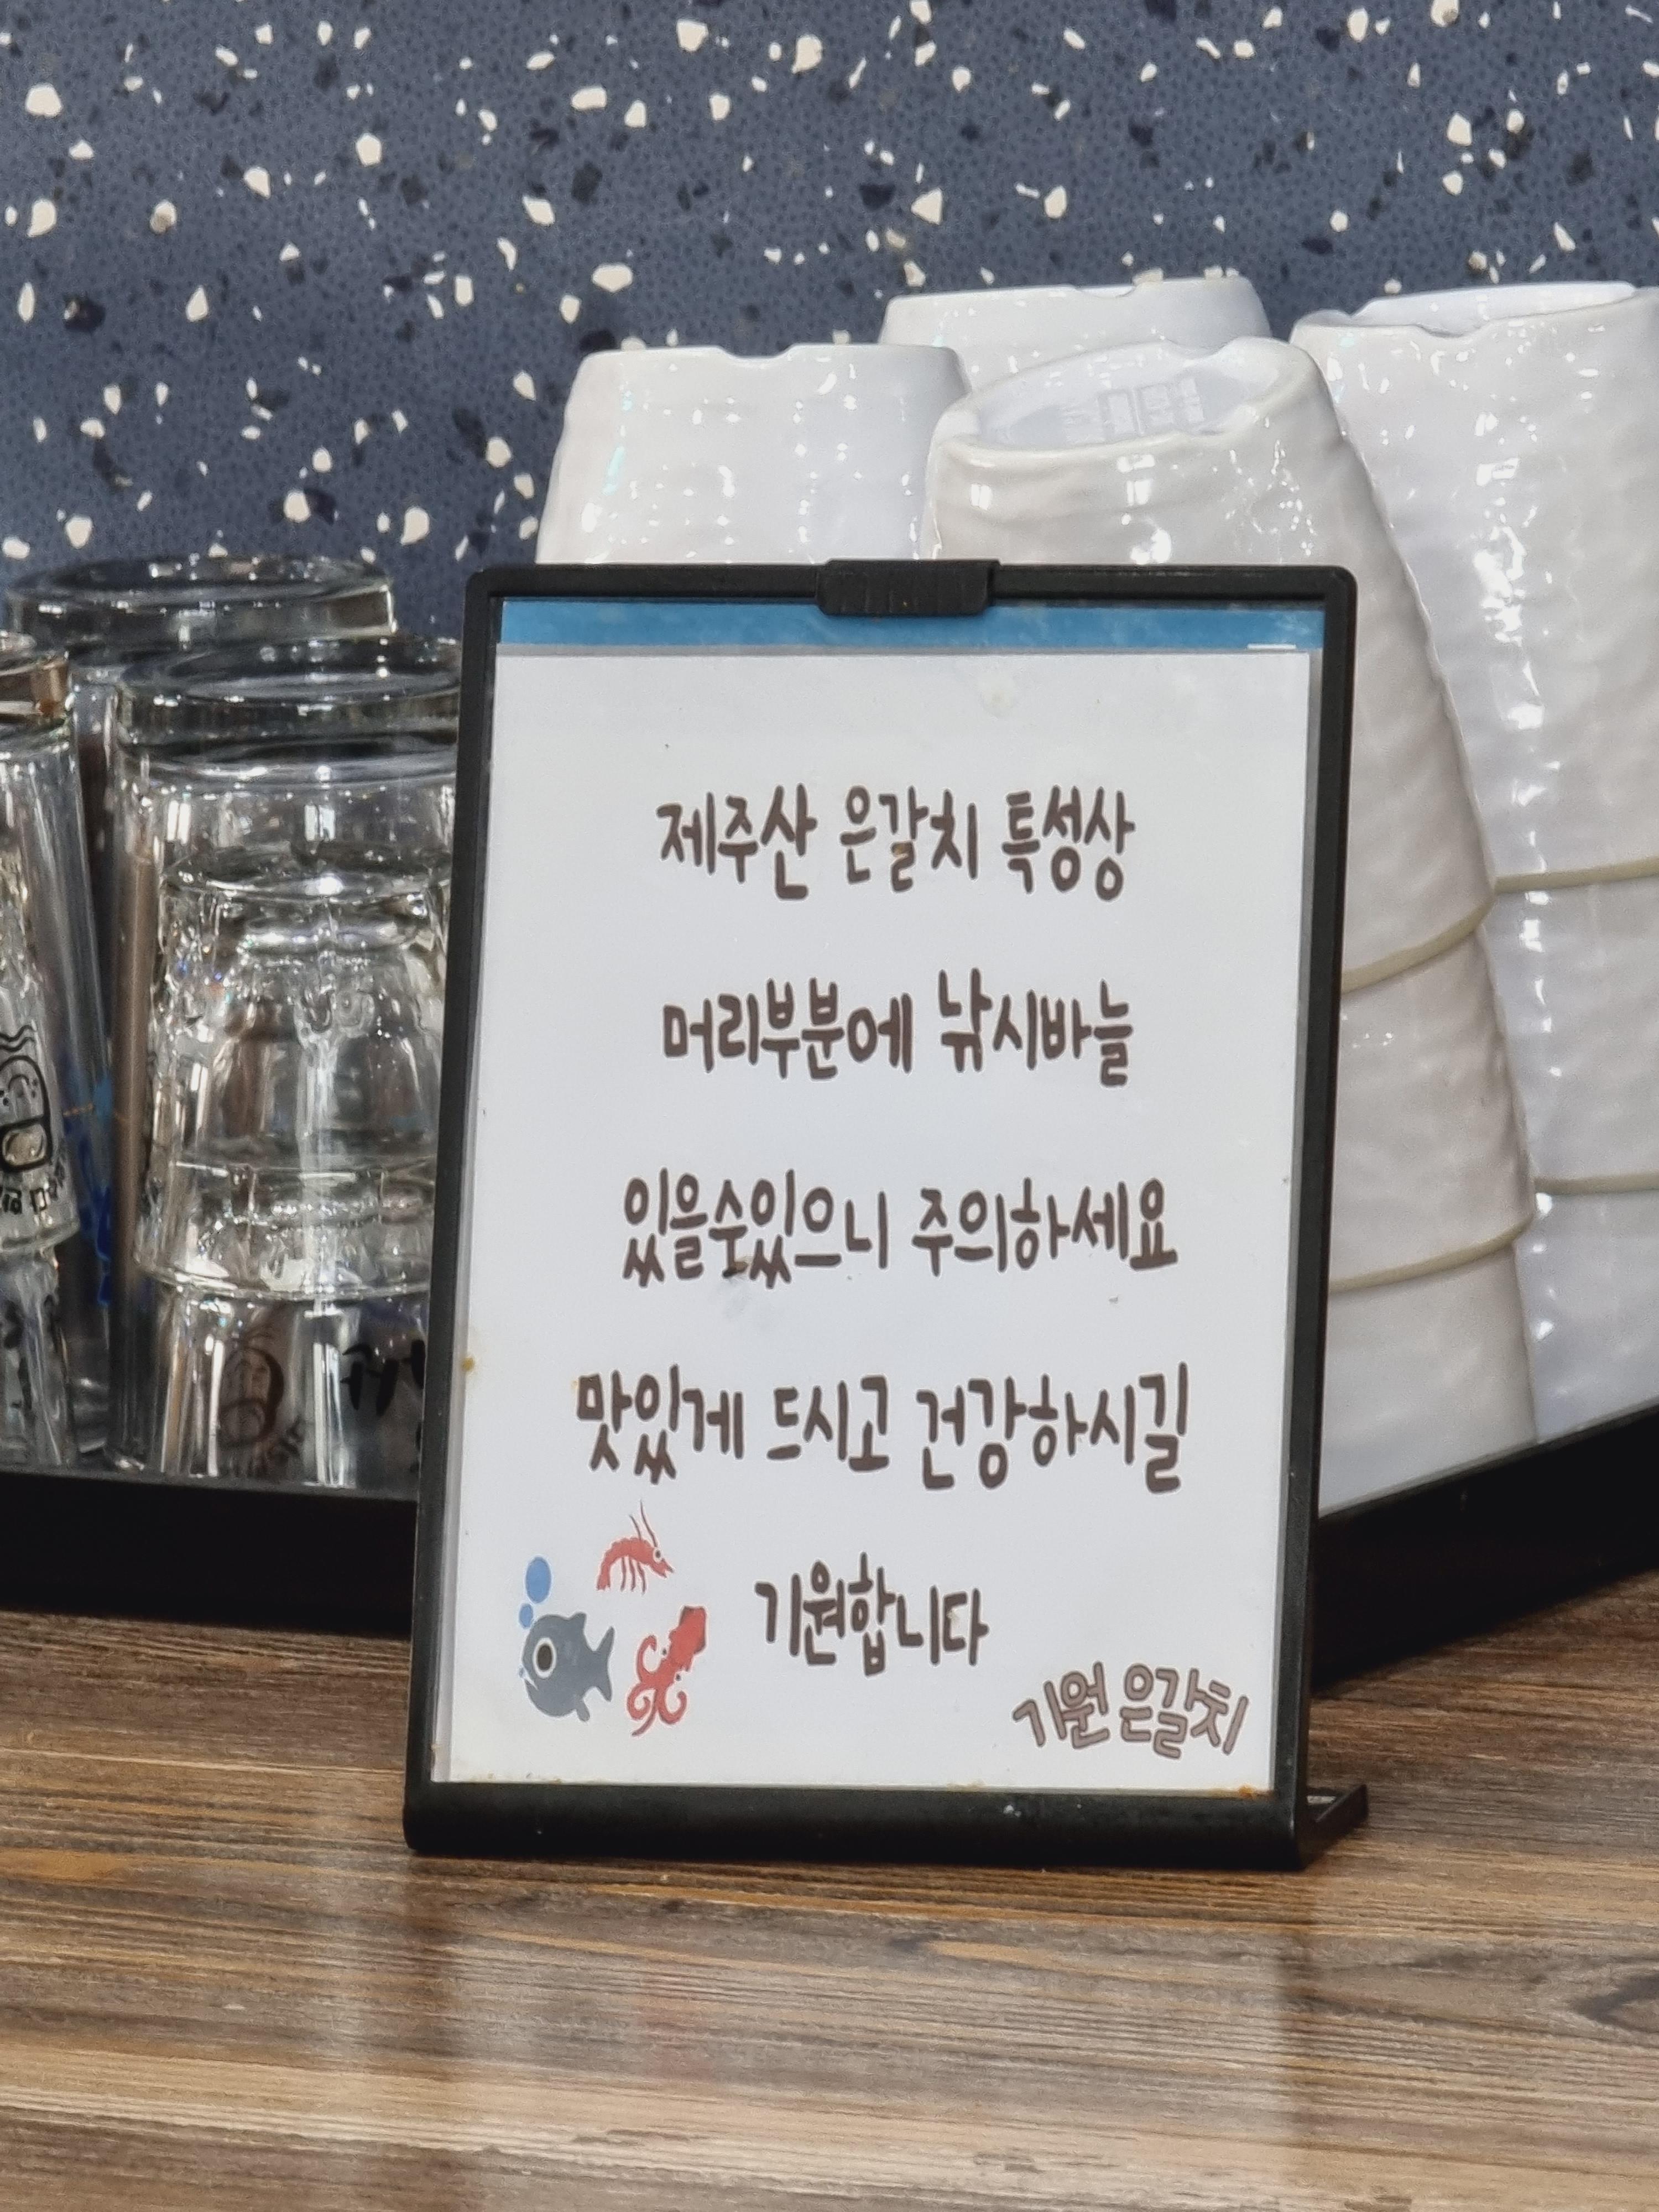 제주산 은갈치 특성상
머리부분에 낚시바늘
있을수있으니 주의하세요
맛있게 드시고 건강하시길
기원합니다
기원 은갈치